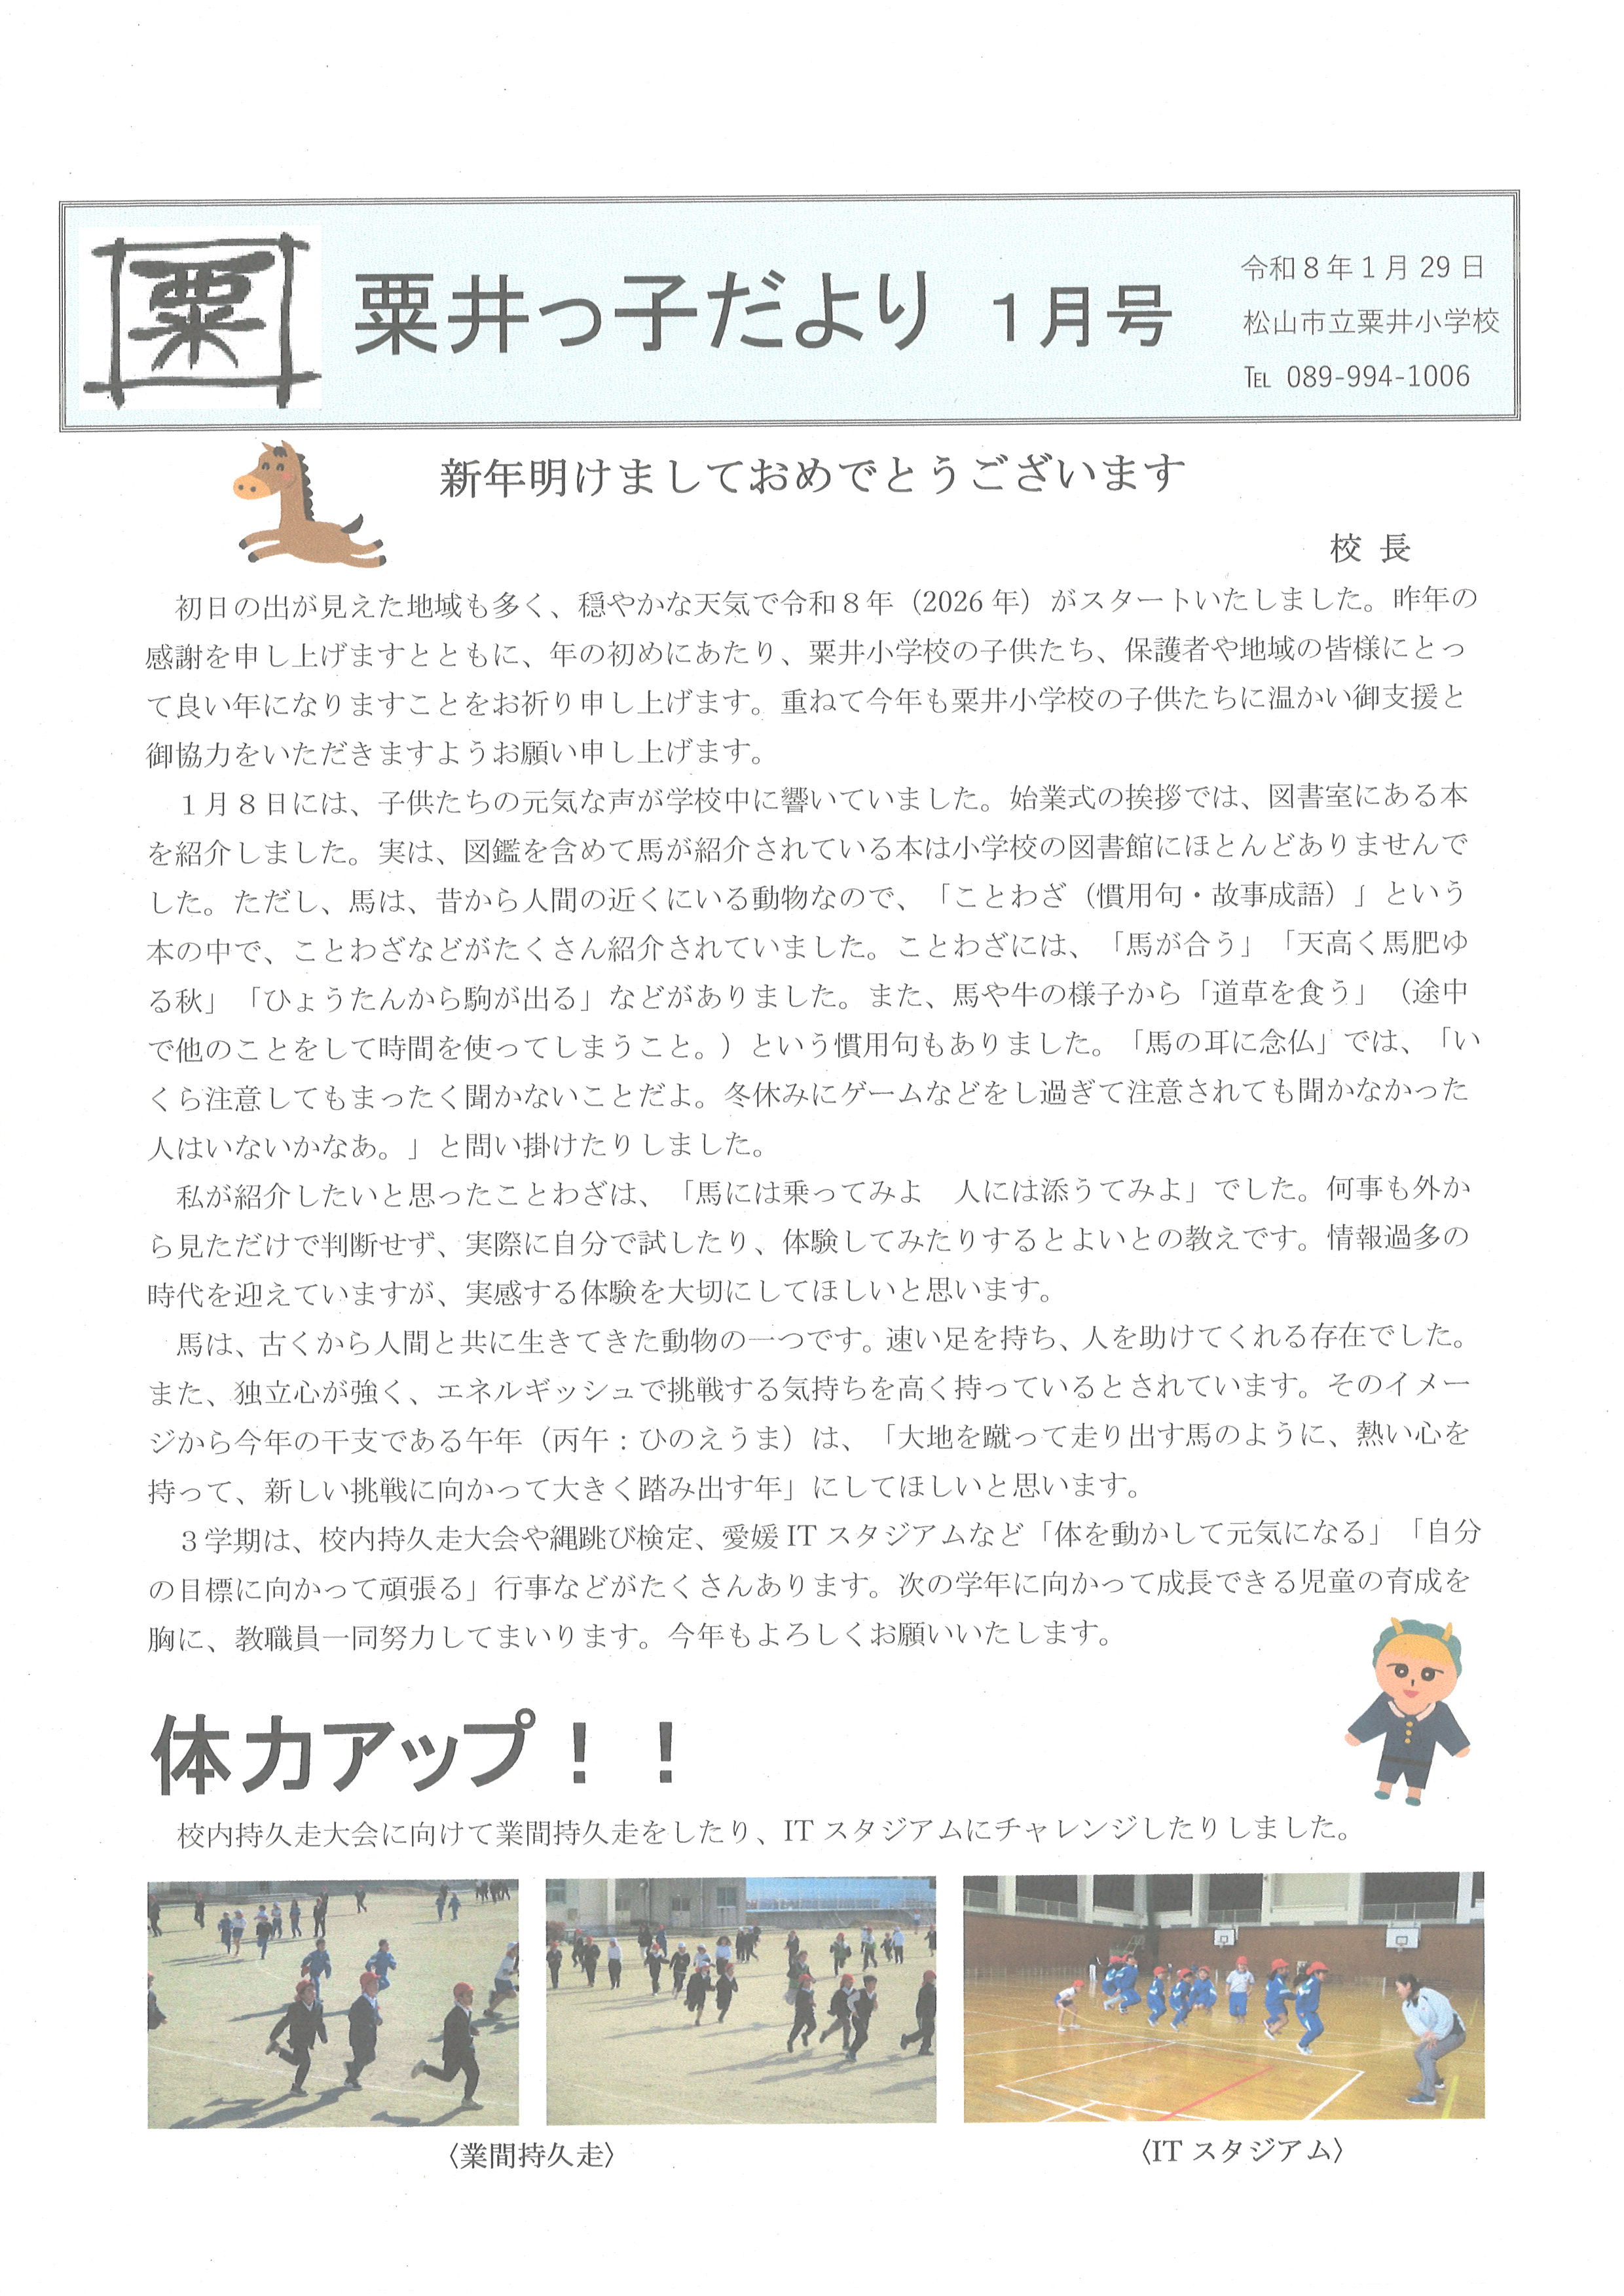 粟
粟井っ子だより 1月号
令和8年1月29日
松山市立粟井小学校
℡ 089-994-1006
新年明けましておめでとうございます
校 長
初日の出が見えた地域も多く、穏やかな天気で令和８年（2026年）がスタートいたしました。昨年の
感謝を申し上げますとともに、年の初めにあたり、粟井小学校の子供たち、保護者や地域の皆様にとっ
て良い年になりますことをお祈り申し上げます。重ねて今年も粟井小学校の子供たちに温かい御支援と
御協力をいただきますようお願い申し上げます。
１月８日には、子供たちの元気な声が学校中に響いていました。始業式の挨拶では、図書室にある本
を紹介しました。実は、図鑑を含めて馬が紹介されている本は小学校の図書館にほとんどありませんで
した。ただし、馬は、昔から人間の近くにいる動物なので、「ことわざ（慣用句・故事成語）」という
本の中で、ことわざなどがたくさん紹介されていました。ことわざには、「馬が合う」「天高く馬肥ゆ
る秋」「ひょうたんから駒が出る」などがありました。また、馬や牛の様子から「道草を食う」（途中
で他のことをして時間を使ってしまうこと。）という慣用句もありました。「馬の耳に念仏」では、「い
くら注意してもまったく聞かないことだよ。冬休みにゲームなどをし過ぎて注意されても聞かなかった
人はいないかなあ。」と問い掛けたりしました。
私が紹介したいと思ったことわざは、「馬には乗ってみよ　人には添うてみよ」でした。何事も外か
ら見ただけで判断せず、実際に自分で試したり、体験してみたりするとよいとの教えです。情報過多の
時代を迎えていますが、実感する体験を大切にしてほしいと思います。
馬は、古くから人間と共に生きてきた動物の一つです。速い足を持ち、人を助けてくれる存在でした。
また、独立心が強く、エネルギッシュで挑戦する気持ちを高く持っているとされています。そのイメー
ジから今年の干支である午年（丙午：ひのえうま）は、「大地を蹴って走り出す馬のように、熱い心を
持って、新しい挑戦に向かって大きく踏み出す年」にしてほしいと思います。
３学期は、校内持久走大会や縄跳び検定、愛媛ITスタジアムなど「体を動かして元気になる」「自分
の目標に向かって頑張る」行事などがたくさんあります。次の学年に向かって成長できる児童の育成を
胸に、教職員一同努力してまいります。今年もよろしくお願いいたします。
体力アップ！！
校内持久走大会に向けて業間持久走をしたり、ITスタジアムにチャレンジしたりしました。
〈業間持久走〉
〈ITスタジアム〉